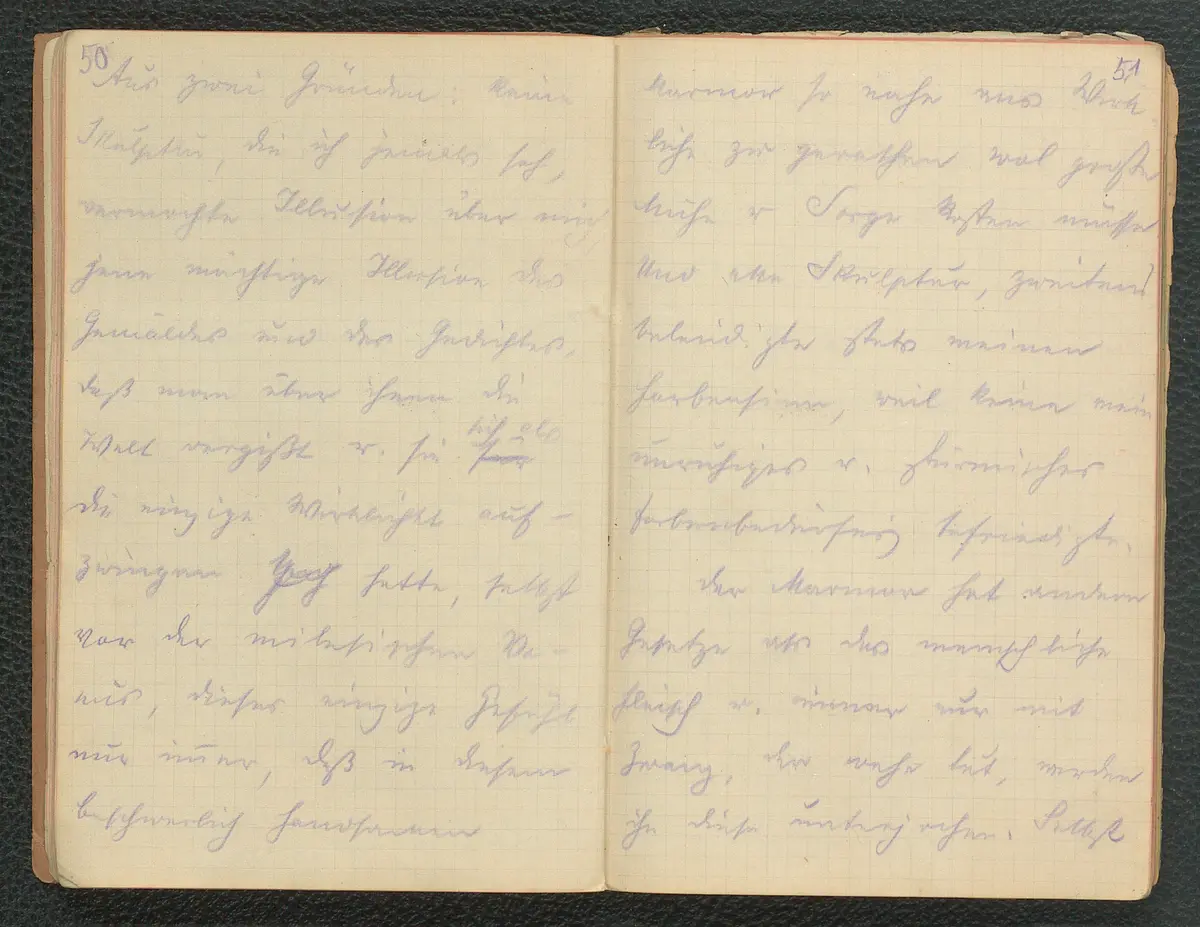 50
Aus zwei Gründen: keine
Skulptur, die ich jemals sah,
vermochte Illusion über mich
jene mächtige Illusion des
Gemäldes und des Gedichtes,
daß man über ihnen die
Welt vergißt u. sie sich als
die einzige Wirklichkt auf-
zwingen hatte, selbst
vor der milesischen Ve-
nus, dieses einzige Gefühl
nur imer, daß in diesem
beschwerlich
51
Marmor so nahe ans Wirk-
liche zu gerathen wol große
Mühe u Sorge kosten müsse
Und eine Skulptur, zweitens
beleidigte stets meinen
Farbensinn, weil keine mein
unruhiges u. stürmisches
Farbenbedürfnis befriedigte.
Der Marmor hat andere
Gesetze als das menschliche
Fleisch u. immer nur mit
Zwang, der wehe tut, werden
ihn diese unterjochen. Selbst